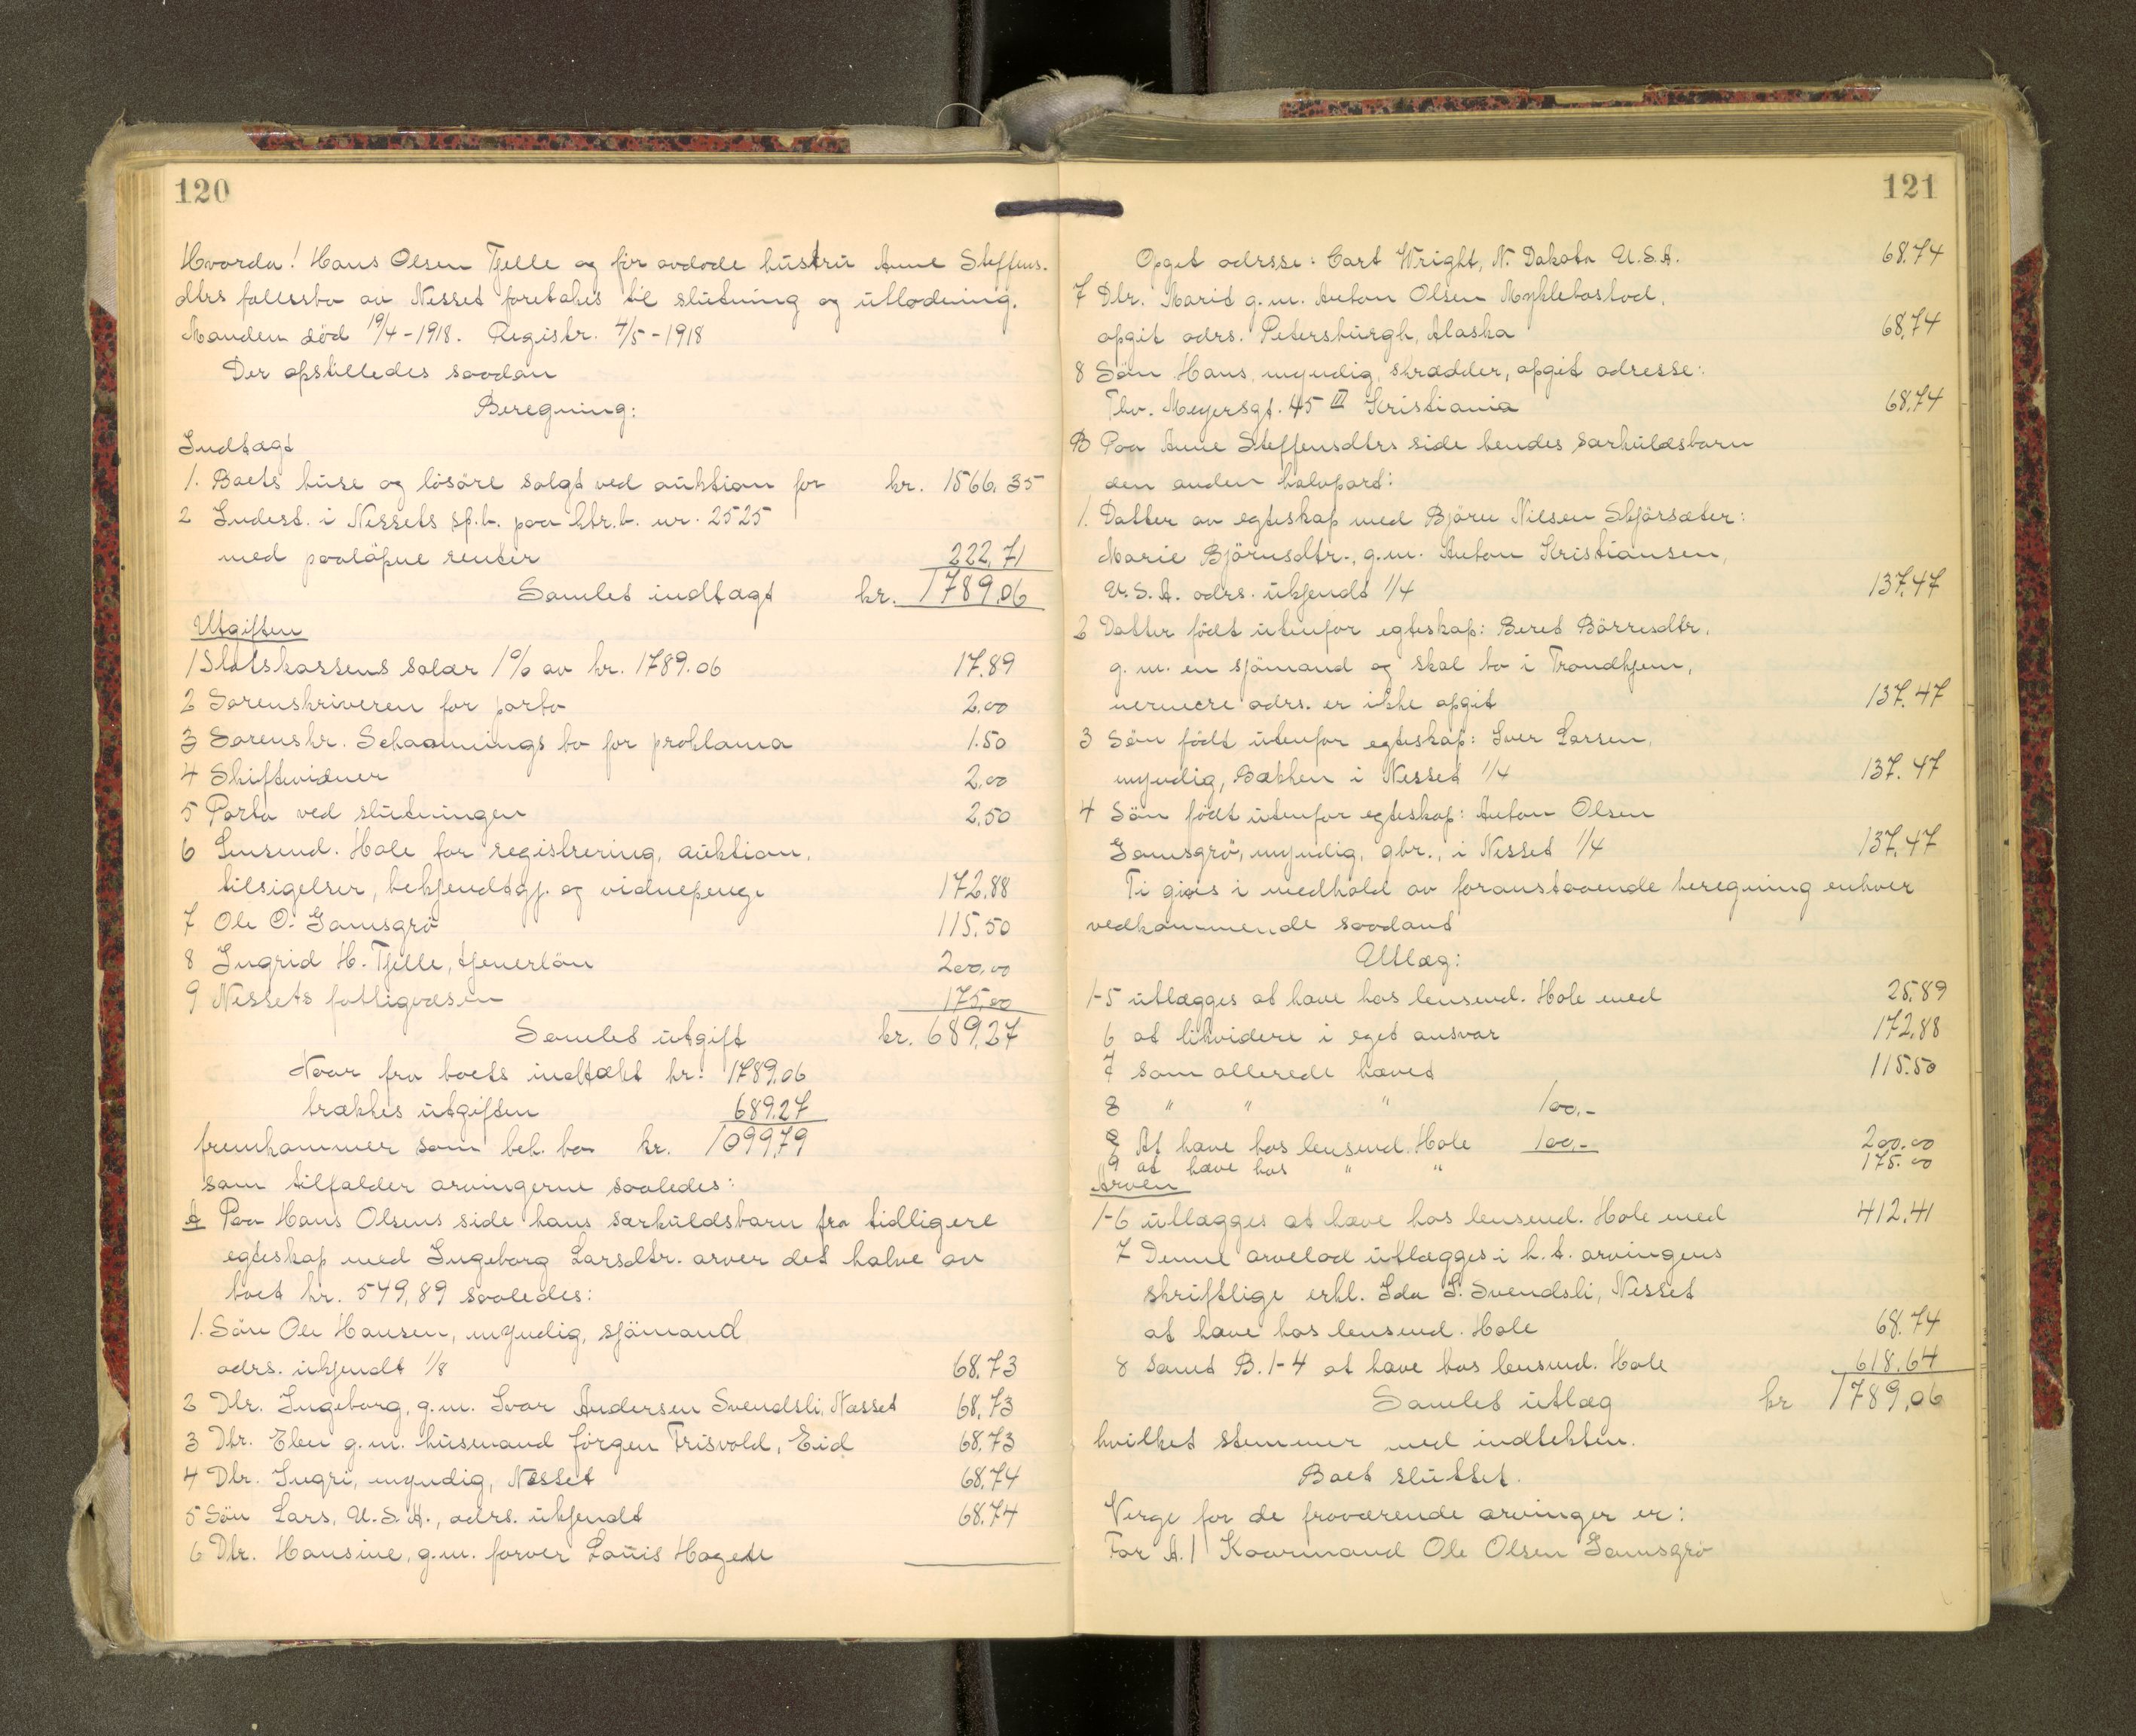 120
Hvorda! Hans Olsen Tjelle og før avdøde hustru Anne Steffens-
dtrs fællesbo av Nesset foretakes til slutning og utlodning.
Manden död 19/4-1918. Registr. 4/5-1918
Der opstilledes saadan
Beregning:
Indtægt
1. Boets huse og lösöre solgt ved auktion for kr. 1566,35
2 Indest. i Nessets sp.b. paa ktr.b. nr. 2525
med paaløpne renter 222,71
Samlet indtægt kr. 1789,06
Utgiften
1 Statskassens salær 1% av kr. 1789.06 17.89
2 Sorenskriveren for porto 2,00
3 Sorenskr. Schaannings bo for proklama 1.50
4 Skiftevidner 2,00
5 Porto ved slutningen 2,50
6 Lensmd. Hole for registrering, auktion,
tilsigelser, bekjendtgj. og vidnepenge 172.88
7 Ole O. Gamsgrö 115.50
8 Ingrid H. Tjelle, tjenerlön 200,00
9 Nessets fattigvæsen 175,00
Samlet utgift kr. 689,27
Naar fra boets indtækt kr. 1789,06
trækkes utgiften 689.27
fremkommer som beh. bo kr. 1099,79
som tilfalder arvingerne saaledes:
A Paa Hans Olsens side hans særkuldsbarn fra tidligere
egteskap med Ingeborg Larsdtr. arver det halve av
boet kr. 549,89 saaledes:
1. Sön Ole Hansen, myndig, sjömand
adrs. ukjendt 1/8 68.73
2 Dtr. Ingeborg, g.m. Ivar Andersen Svendsli, Næsset 68,73
3 Dtr. Elen g.m. husmand Jörgen Frisvold, Eid 68,73
4 Dtr. Ingri, myndig, Nesset 68,74
5 Sön Lars, U.S.A., adrs. ukjendt 68.74
6 Dtr. Hansine, g.m. farver Louis Hagen
121
Opgit adrsse: Cart Wright, N. Dakota U.S.A. 68.74
7 Dtr. Marit g.m. Anton Olsen Myklebostad,
opgit adrs. Petersburgh, Alaska 68,74
8 Sön Hans, myndig, skrædder, opgit adresse:
Thv. Meyersgt. 45 III Kristiania 68,74
B Paa Anne Steffensdtrs side hendes særkuldsbarn
den anden halvpart:
1. Datter av egteskap med Björn Nilsen Skjörsæter:
Marie Björnsdtr., g.m. Anton Kristiansen,
U.S.A. adrs. ukjendt 1/4 137,47
2 Datter födt utenfor egteskap: Beret Börresdtr.
g.m. en sjömand og skal bo i Trondhjem,
nermere adrs. er ikke opgit 137.47
3 Sön födt utenfor egteskap: Iver Larsen,
myndig, Bakken i Nesset 1/4 137.47
4 Sön födt utenfor egteskap: Anton Olsen
Gamsgrö, myndig, gbr., i Nesset 1/4 137,47
Ti gives i medhold av foranstaaende beregning enhver
vedkommende saadant
Utlæg:
1-5 utlægges at hæve hos lensmd. Hole med 25.89
6 at likvidere i eget ansvar 172,88
7 som allerede hævet 115.50
8 " " " 100.-
8 At hæve hos lensmd. Hole 100.- 200.00
9 at hæve hos " " 175.00
Arven
1-6 utlægges at hæve hos lensmd. Hole med 412.41
7 Denne arvelod utlægges i h.t. arvingens
skriftlige erkl. Ida I. Svendsli, Nesset
at hæve hos lensmd. Hole 68.74
8 samt B. 1-4 at hæve hos lensmd. Hole 618.64
Samlet utlæg kr 1789,06
hvilket stemmer med indtekten.
Boet sluttet.
Verge for de fraværende arvinger er:
For A.1 Kaarmand Ole Olsen Gamsgrö